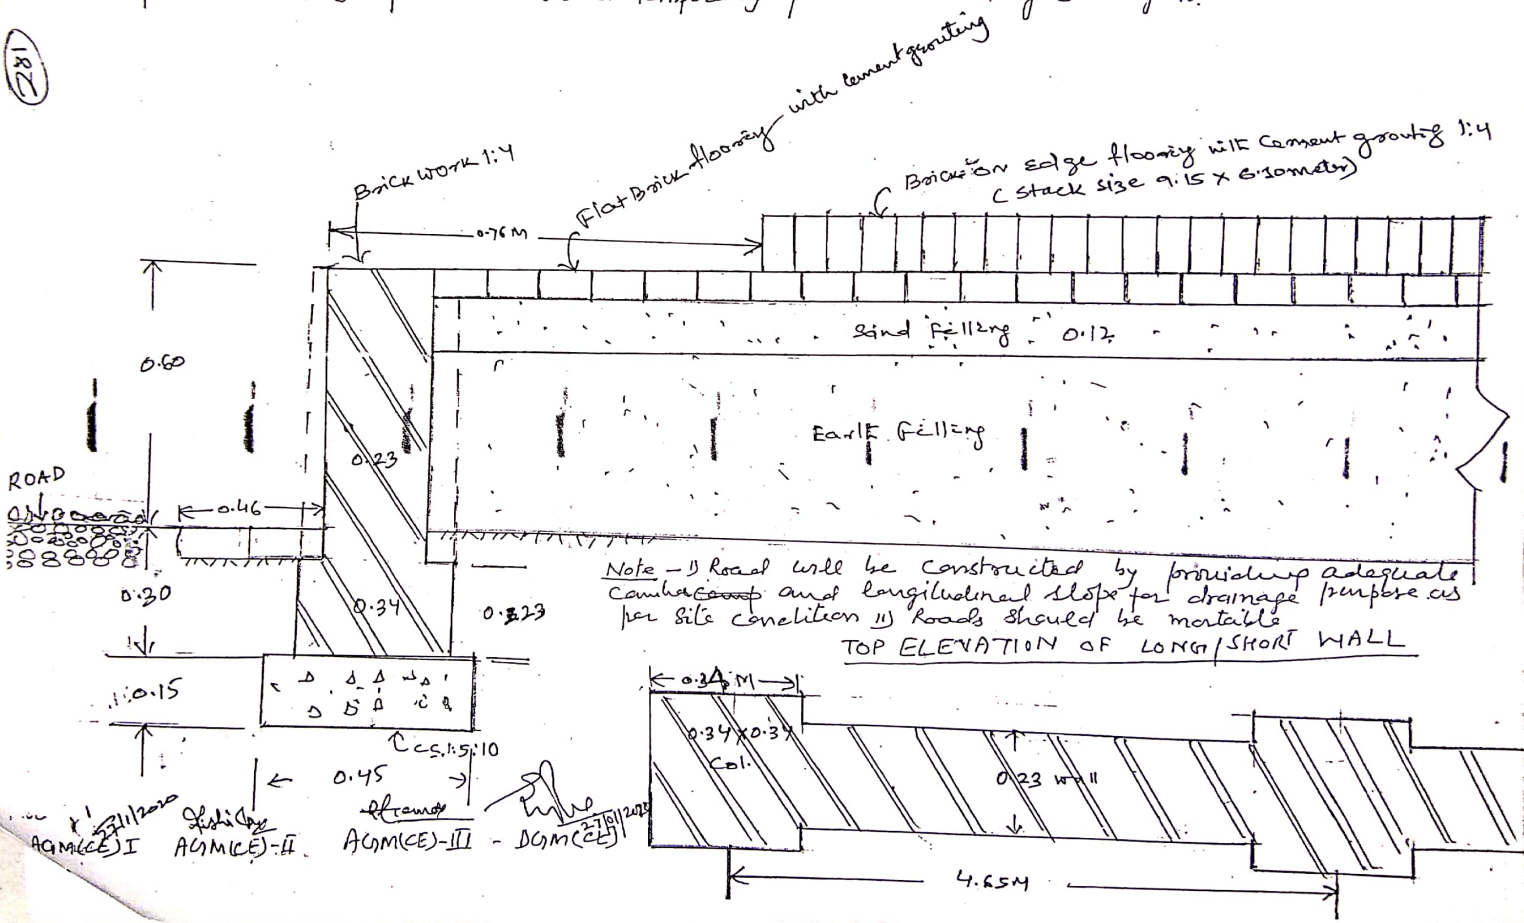 182
Brick work 1:4
Flat Brick flooring with cement grouting
Brick on edge flooring with cement grouting 1:4
( stack size 9.15 x 6.10 meter)
0.76 M
Sand Filling 0.12
0.60
Earth Filling
0.23
ROAD
0.46
0.30
0.34
0.23
Note - i) Road will be constructed by providing adequate
camber and longitudinal slope for drainage purpose as
per site condition ii) Roads should be
TOP ELEVATION OF LONG/SHORT WALL
0.15
0.34 M
0.34 x 0.34
Col.
0.23 wall
C c 1:5:10
0.45
4.65M
27/1/2020
27/01/2020
AGM(CE) I AGM(CE)-II. AGM(CE)-III - DGM(CE)